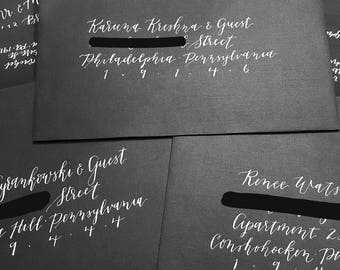 Karuna Krishna & Guest
Street
Philadelphia Pennsylvania
1 · 9 · 1 · 4 · 6
yrankowski & Guest
Street
Hill Pennsylvania
9 · 4 · 4 · 4
Renee Wats
Apartment 2
Conshohocken P